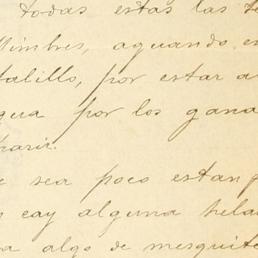 todas estas las te
Mimbres, aguando en
talillo, por estar a
gua por los gana
parir.
e sea poco estang
cay alguna hela
a algo de mesquite